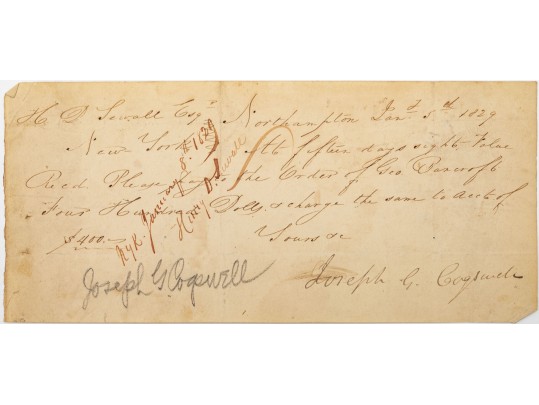 H. D. Sewall Esqr Northampton Jany 5th 1829
New York At fifteen days sight Value
Recd. Please pay the Order of Geo Bancroft
Four Hundred Dolls. & charge the same to Acct of
$400.— Yours &c
Joseph G. Cogswell
NYk. January 8th 1829
Henry D. Sewall
Joseph G. Cogswell